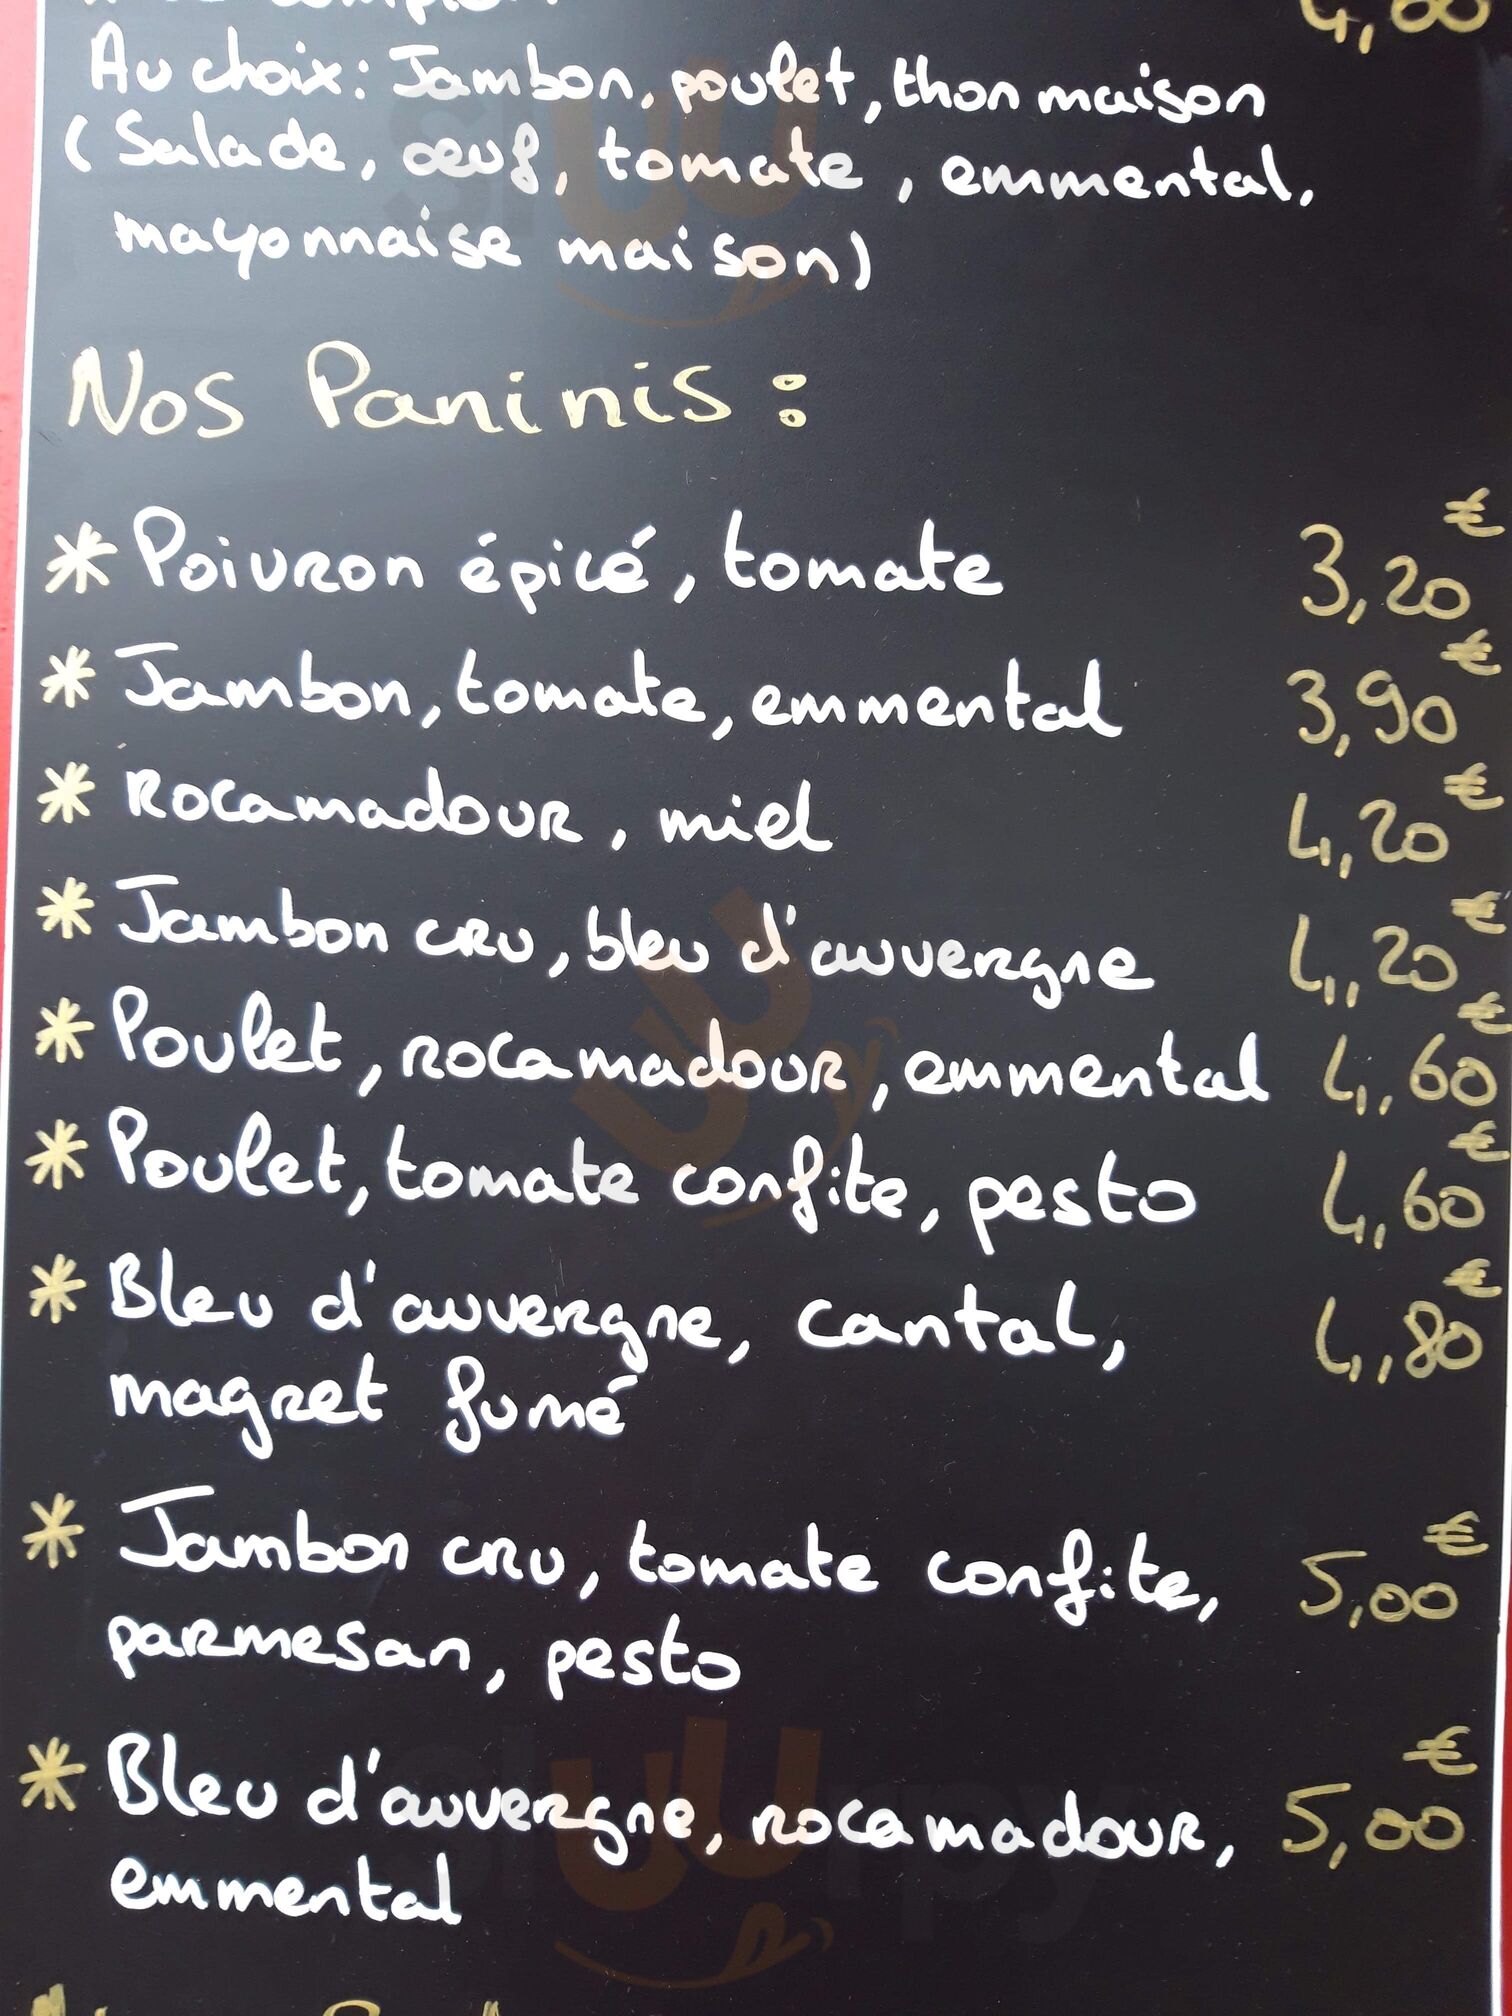 4,00
Au choix: Jambon, poulet, thon maison
(Salade, œuf, tomate, emmental,
mayonnaise maison)
Nos Paninis:
* Poivron épicé, tomate 3,20€
* Jambon, tomate, emmental 3,90€
* Rocamadour, miel 4,20€
* Jambon cru, bleu d'auvergne 4,20€
* Poulet, rocamadour, emmental 4,60€
* Poulet, tomate confite, pesto 4,60€
* Bleu d'auvergne, cantal, 4,80€
magret fumé
* Jambon cru, tomate confite, 5,00€
parmesan, pesto
* Bleu d'auvergne, rocamadour, 5,00€
emmental